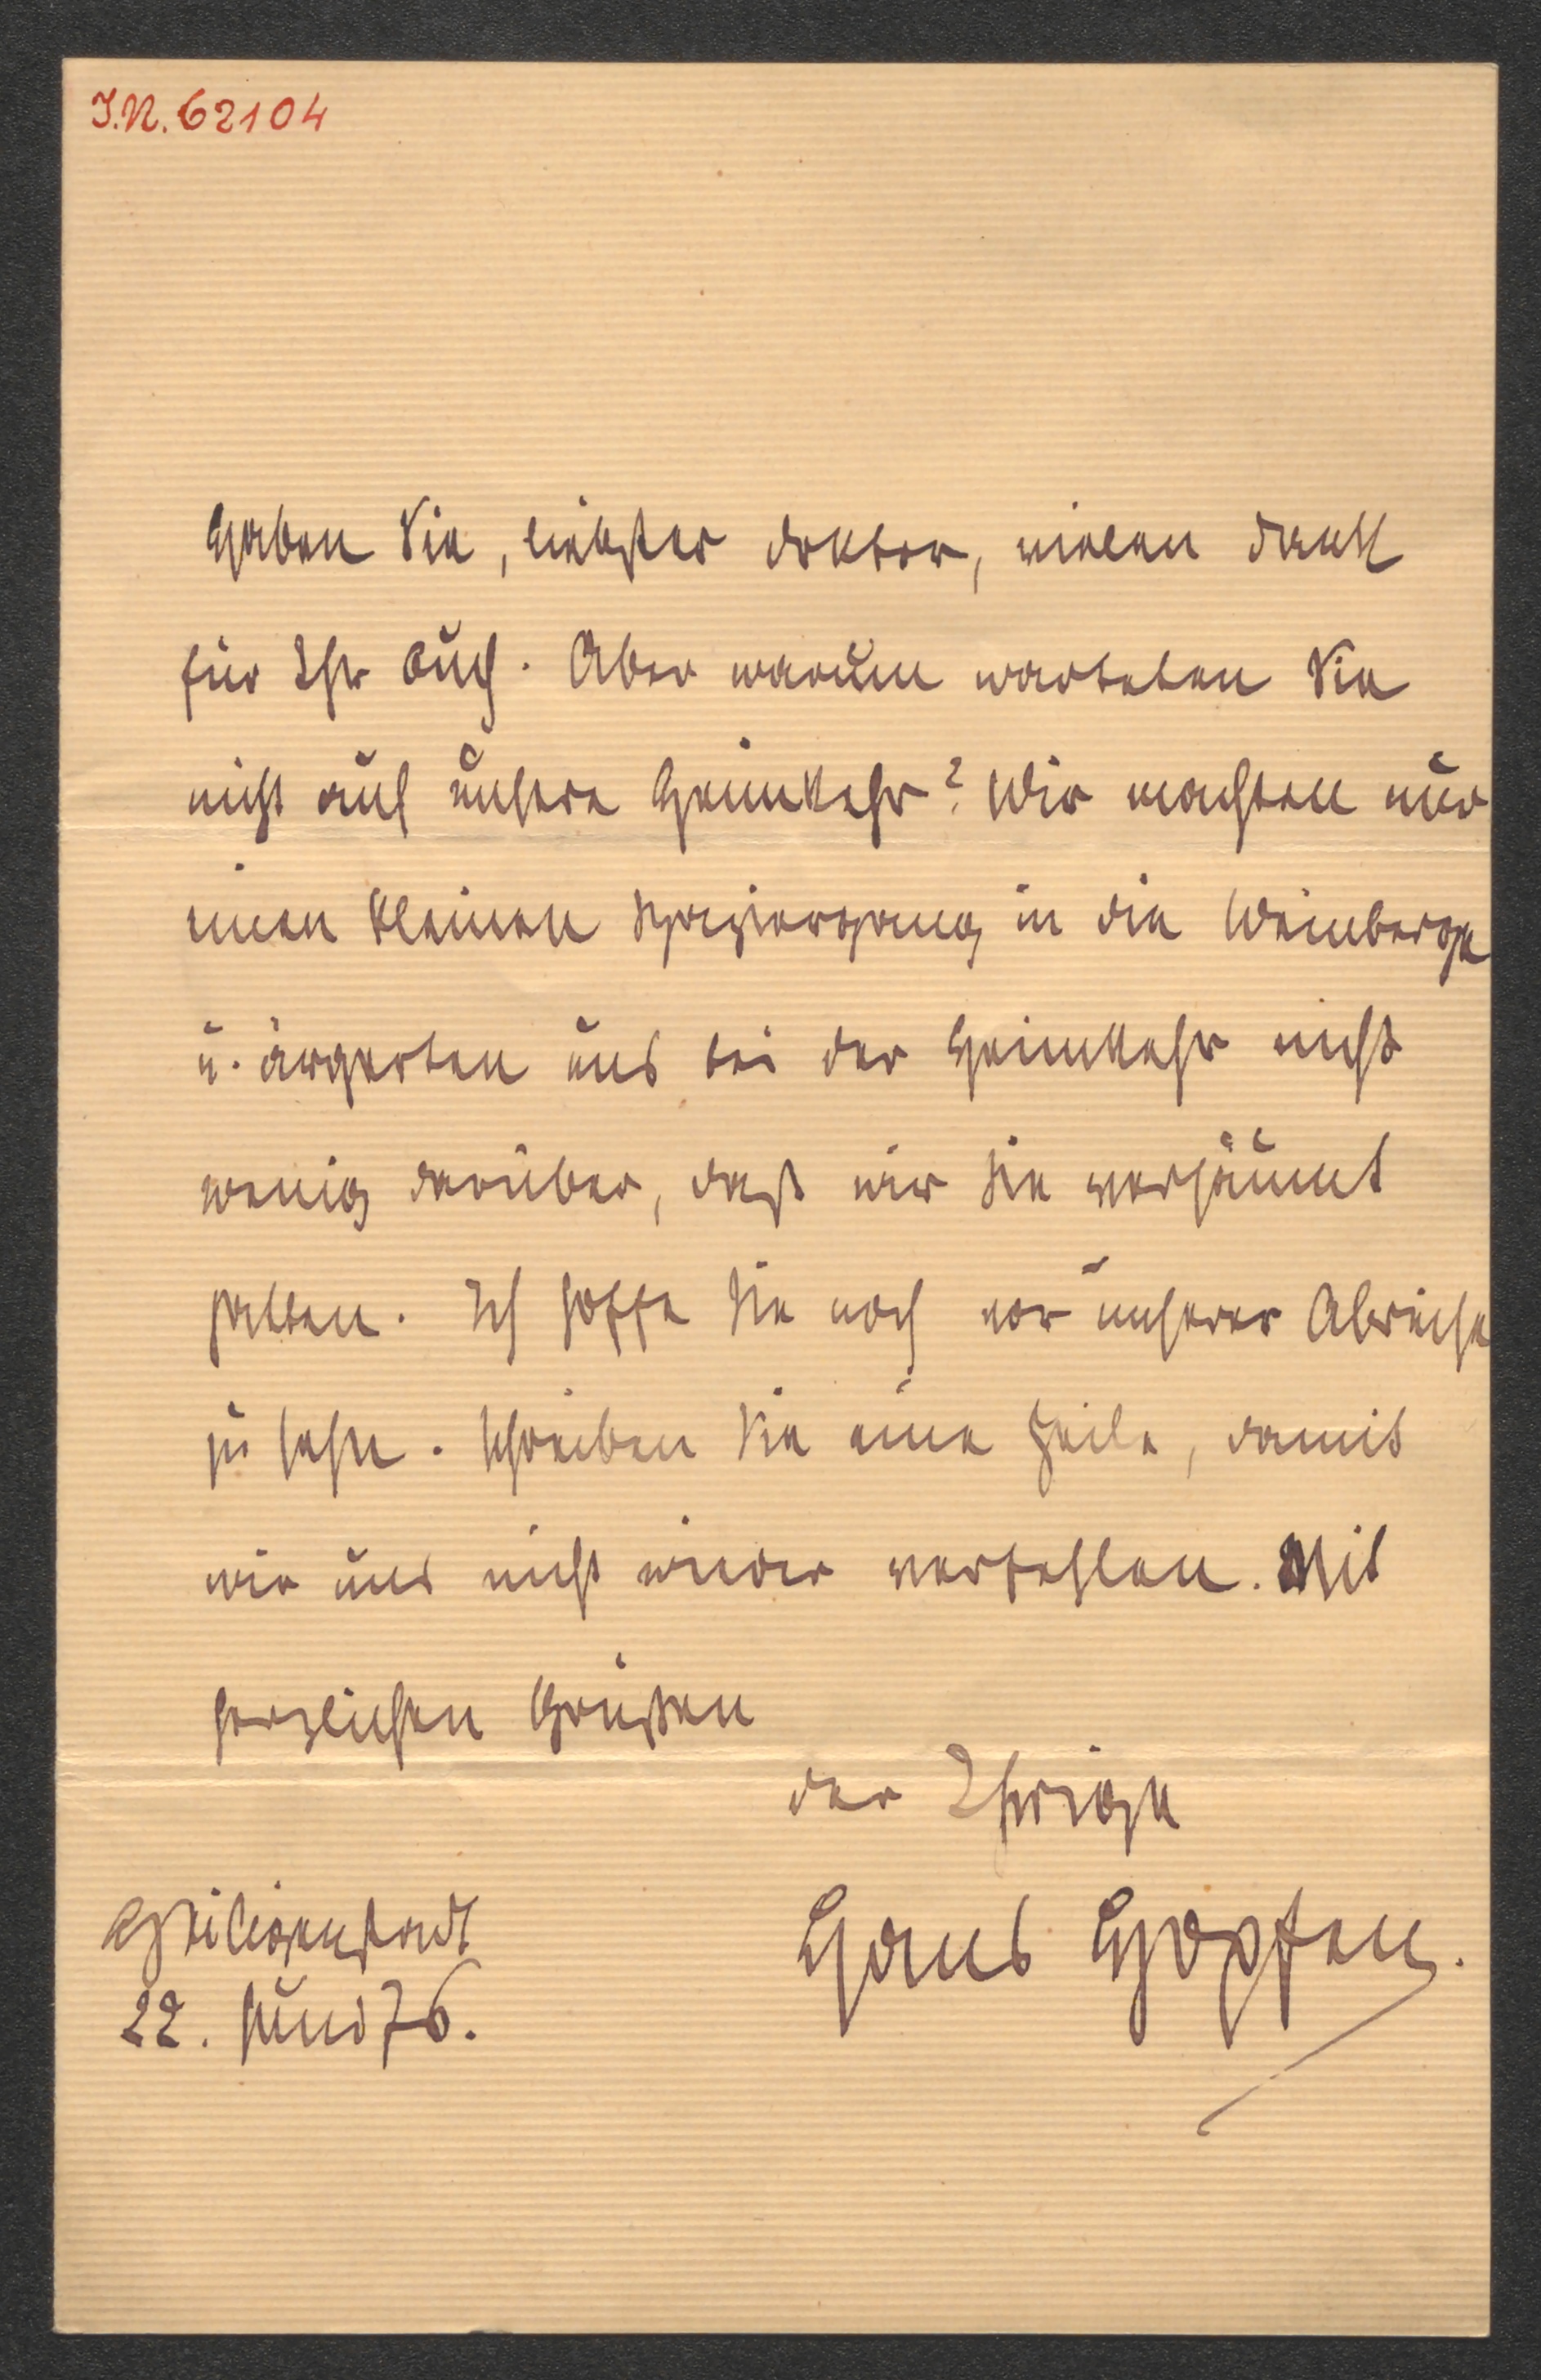 I.N. 62104
Haben Sie, liebster Doktor, vielen Dank
für Ihr Buch. Aber warum warteten Sie
nicht auf unsere Heimkehr? Wir machten nur
einen kleinen Spaziergang in die Weinberge
u. ärgerten uns bei der Heimkehr nicht
wenig darüber, daß wir Sie versäumt
hatten. Ich hoffe Sie noch vor unserer Abreise
zu sehn. Schreiben Sie eine Zeile, damit
wir uns nicht wieder verfehlen. Mit
herzlichen Grüßen
der Ihrige
Hans Hopfen.
Heiligenstadt
22. Juni 76.